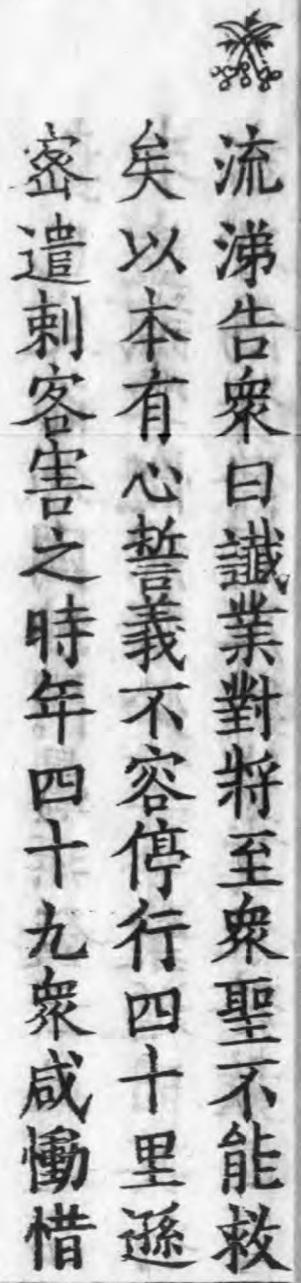 流涕告衆曰讖業對將至衆聖不能救
矣以本有心誓義不容停行四十里遜
宻遣刺客害之時年四十九衆咸慟惜